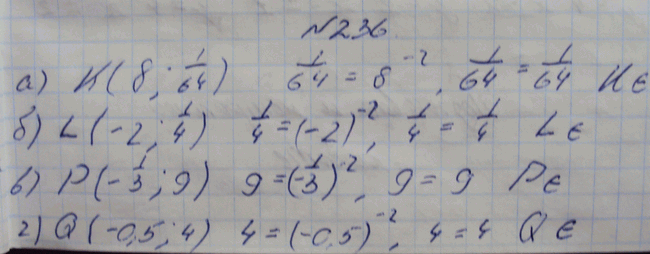 №236
а) K(8; 1/64) 1/64 = 8⁻², 1/64 = 1/64 K є
б) L(-2; 1/4) 1/4 = (-2)⁻², 1/4 = 1/4 L є
в) P(-1/3; 9) 9 = (-1/3)⁻², 9 = 9 P є
г) Q(-0,5; 4) 4 = (-0,5)⁻², 4 = 4 Q є